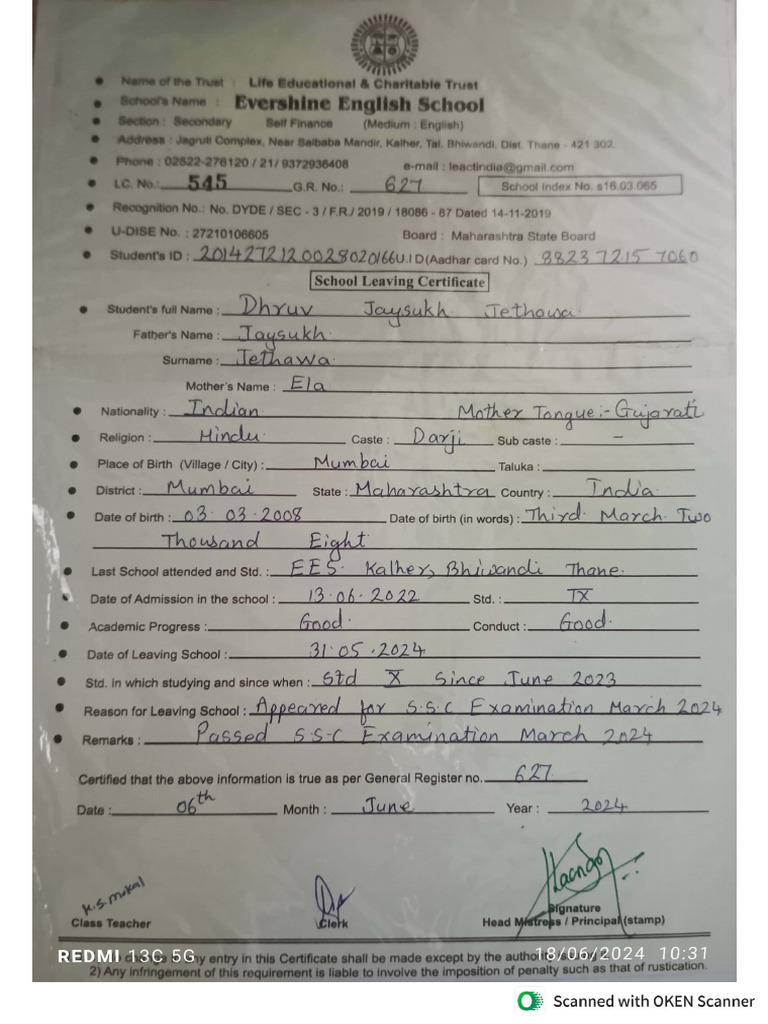 Name of the Trust : Life Educational & Charitable Trust
School's Name : Evershine English School
Section : Secondary Self Finance (Medium : English)
Address : Jagruti Complex, Near Saibaba Mandir, Kalher, Tal. Bhiwandi, Dist. Thane - 421 302.
Phone : 02522-276120 / 21/ 9372936408 e-mail : leactindia@gmail.com
LC. No.: 545 G.R. No.: 627 School Index No. s16.03.065
Recognition No.: No. DYDE / SEC - 3 / F.R./ 2019 / 18086 - 87 Dated 14-11-2019
U-DISE No. : 27210106605 Board : Maharashtra State Board
Student's ID : 2014272120028020166 U.I D(Aadhar card No.) 8823 7215 7060
School Leaving Certificate
Student's full Name : Dhruv Jaysukh Jethawa
Father's Name : Jaysukh
Surname : Jethawa
Mother's Name : Ela
Nationality : Indian Mother Tongue:- Gujarati
Religion : Hindu Caste : Darji Sub caste : -
Place of Birth (Village / City) : Mumbai Taluka :
District : Mumbai State : Maharashtra Country : India
Date of birth : 03.03.2008 Date of birth (in words) : Third March Two
Thousand Eight
Last School attended and Std. : EES. Kalher, Bhiwandi Thane.
Date of Admission in the school : 13.06.2022 Std. : IX
Academic Progress : Good. Conduct : Good.
Date of Leaving School : 31.05.2024
Std. in which studying and since when : Std X Since June 2023
Reason for Leaving School : Appeared for S.S.C Examination March 2024
Remarks : Passed S.S.C Examination March 2024
Certified that the above information is true as per General Register no. 627
Date : 06th Month : June Year : 2024
K.S. Mukal
Class Teacher Clerk Signature
Head Mistress / Principal (stamp)
any entry in this Certificate shall be made except by the
2) Any infringement of this requirement is liable to involve the imposition of penalty such as that of rustication.
REDMI 13C 5G 18/06/2024 10:31
Scanned with OKEN Scanner